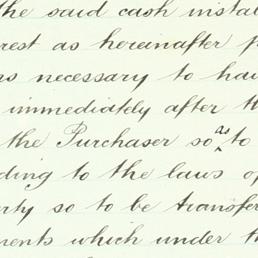 the said cash instal
rest as hereinafter p
as necessary to hav
immediately after th
the Purchaser so ^as to
ding to the laws of
rty so to be transfer
ments which under th